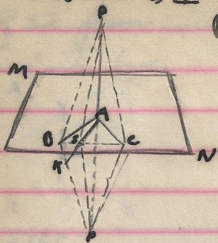 P
M
A
B
C
N
K
P